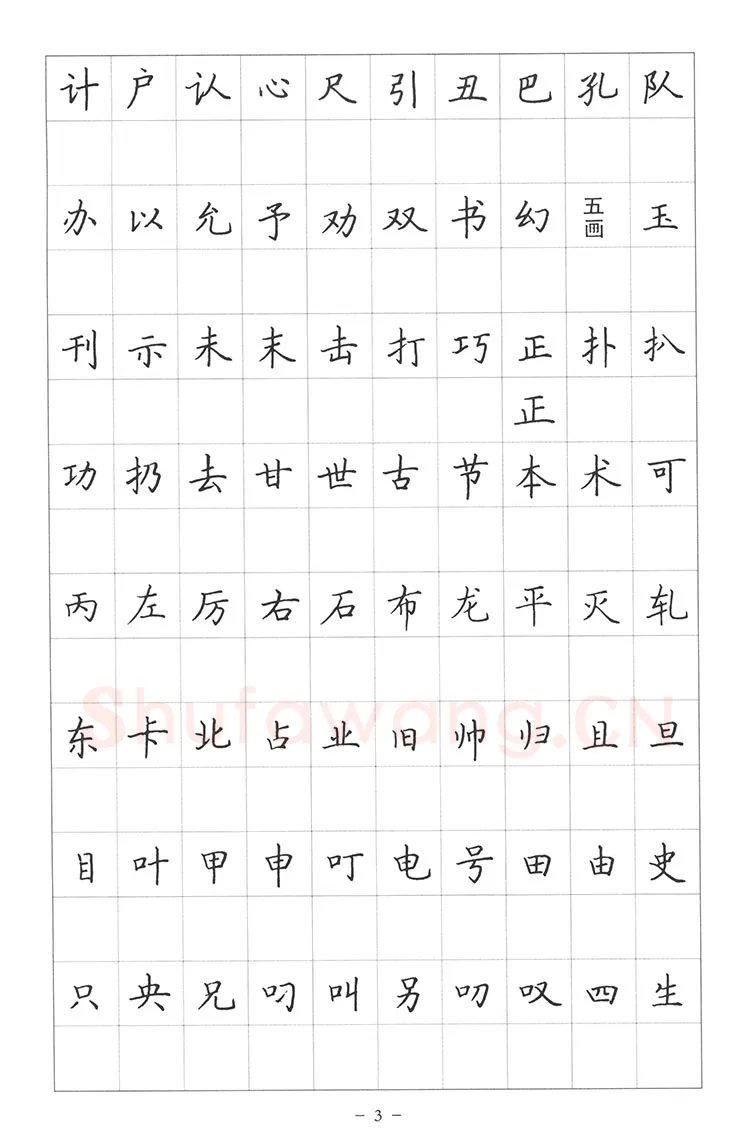 计户认心尺引丑巴孔队
办以允予劝双书幻五画玉
刊示未末击打巧正扑扒
正
功扔去甘世古节本术可
丙左厉右石布龙平灭轧
Shufawang.CN
东卡北占业旧帅归且旦
目叶甲申叮电号田由史
只央兄叼叫另叨叹四生
- 3 -